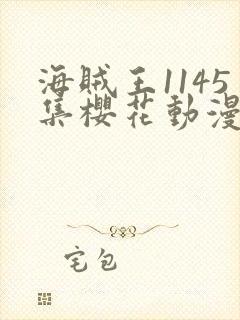 海贼王1145
集櫻花動漫
宅包